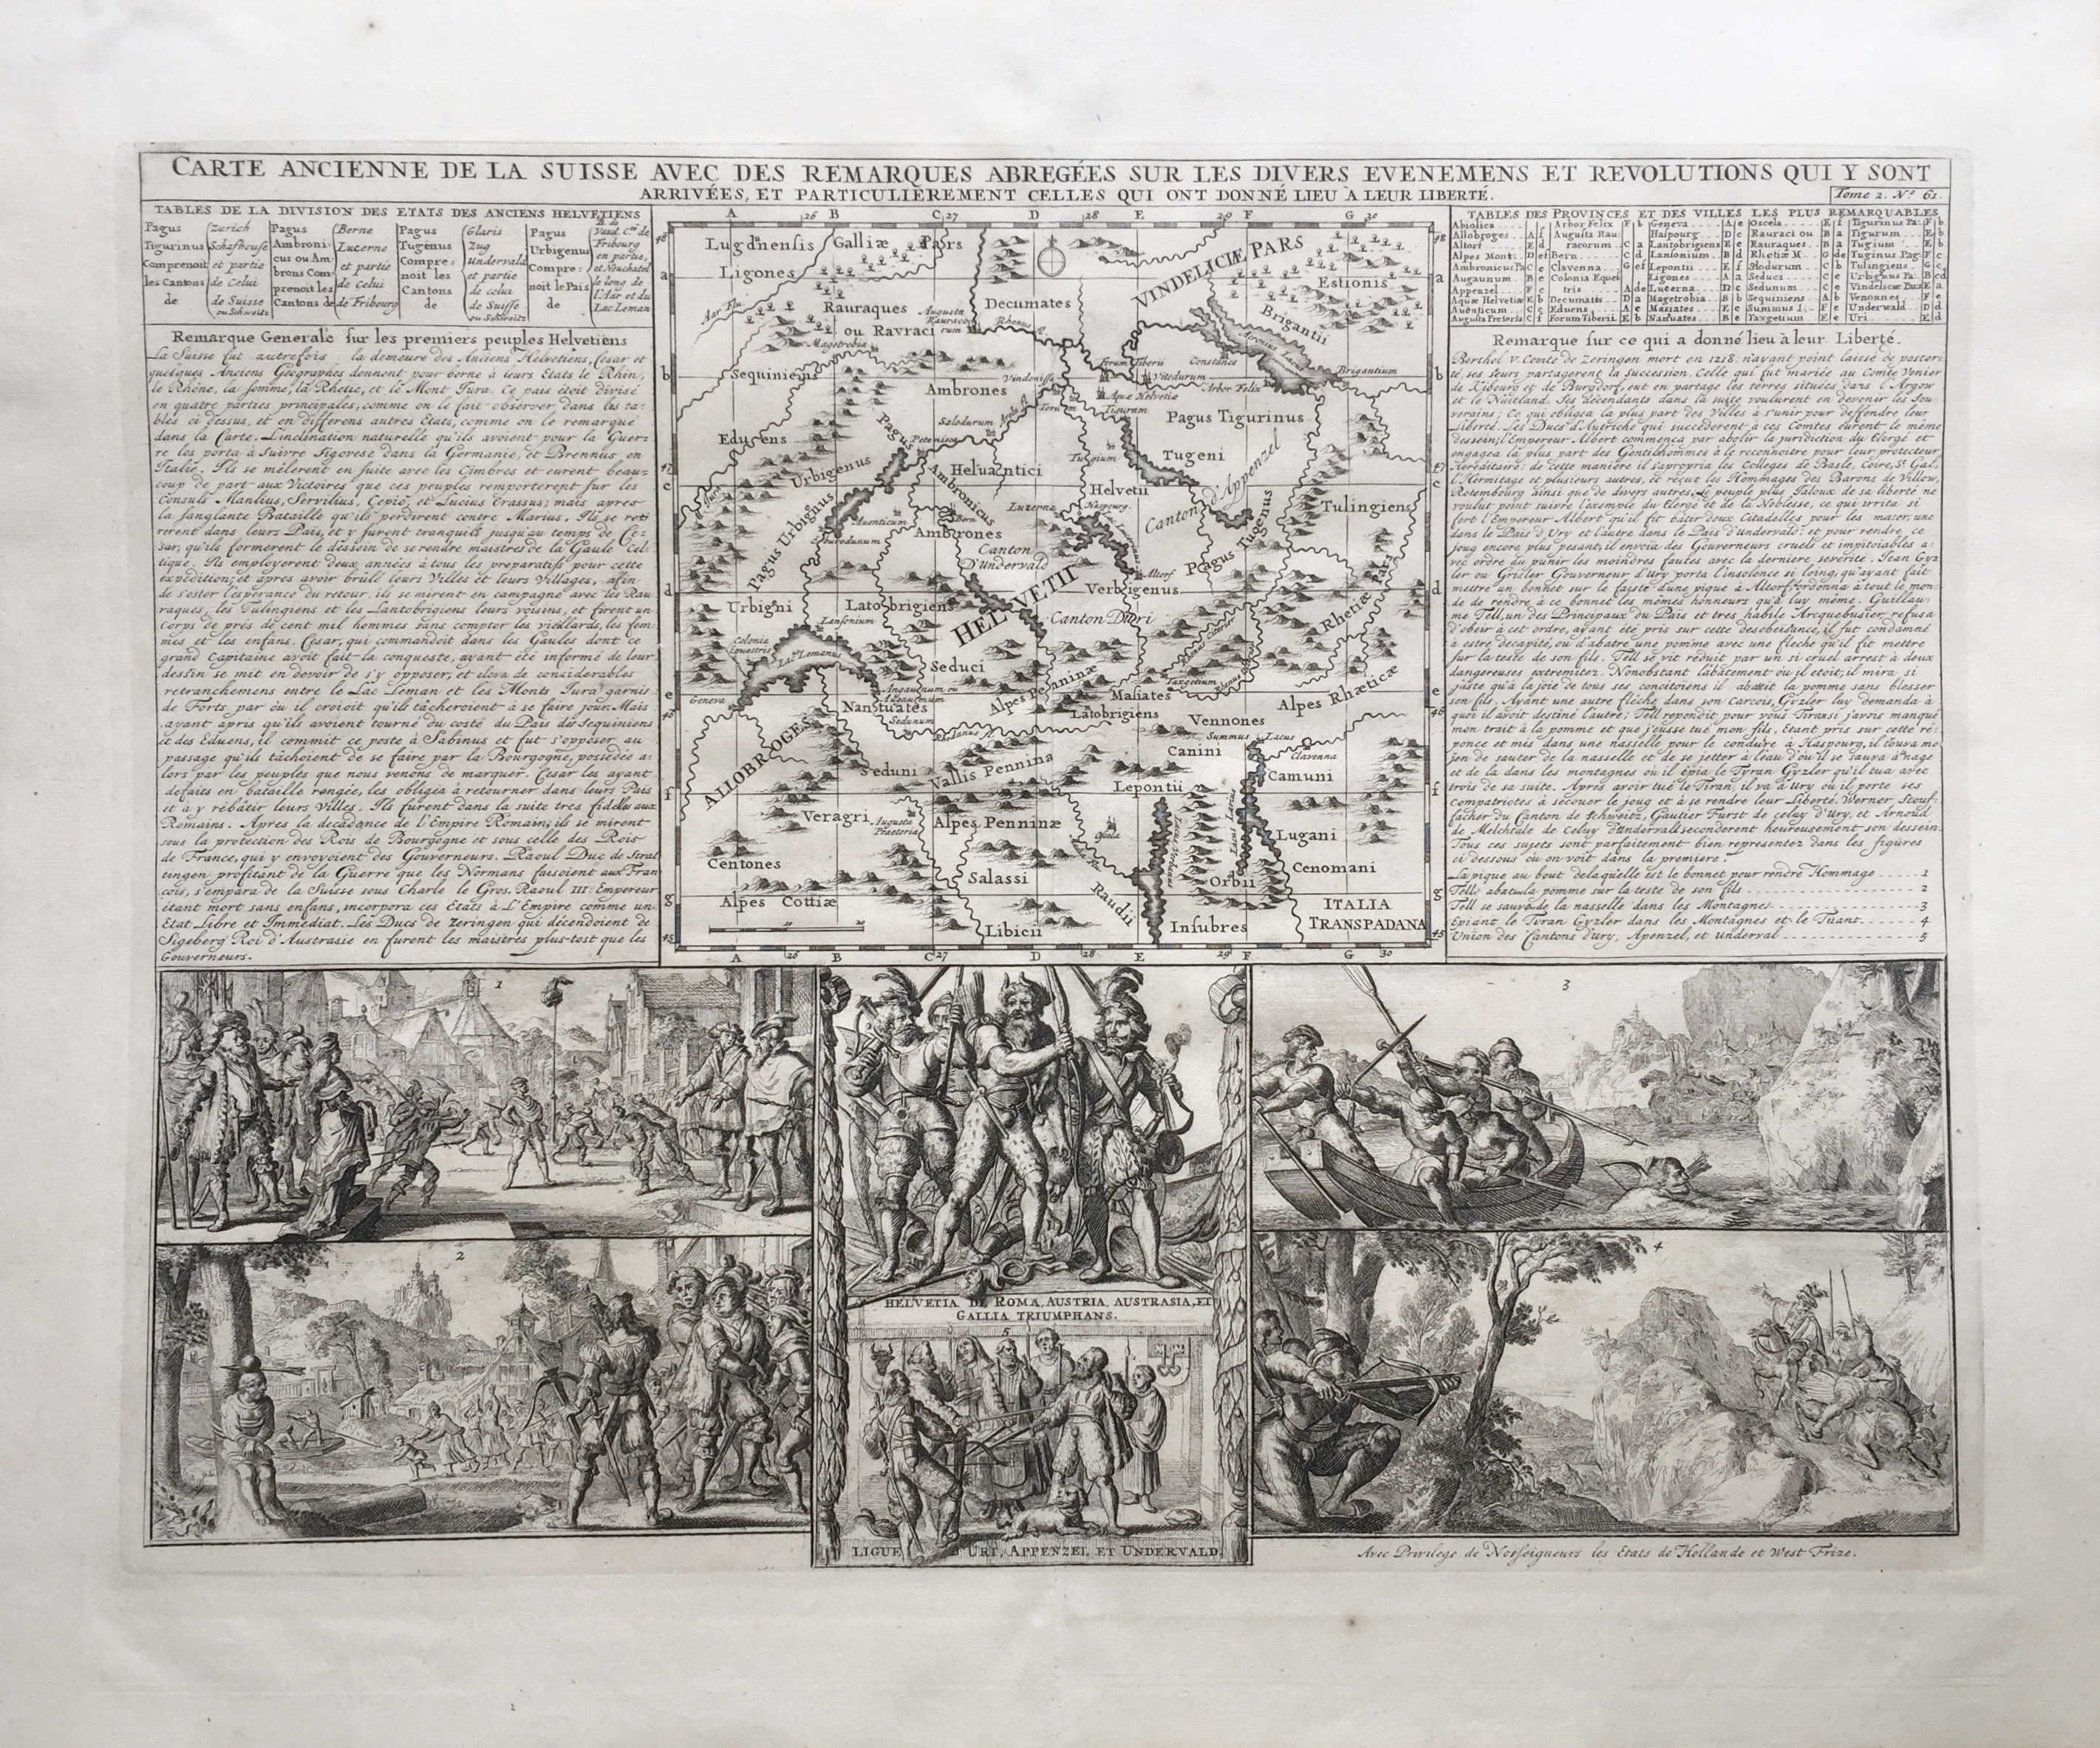 CARTE ANCIENNE DE LA SUISSE AVEC DES REMARQUES ABREGÉES SUR LES DIVERS EVENEMENS ET REVOLUTIONS QUI Y SONT
ARRIVÉES, ET PARTICULIÈREMENT CELLES QUI ONT DONNÉ LIEU À LEUR LIBERTÉ.
Tome 2. No. 61.
TABLES DE LA DIVISION DES ETATS DES ANCIENS HELVETIENS
Pagus Tigurinus Comprenoit les Cantons de
Zurich
Schafhouse
et partie
de Celui
de Suisse
ou Schweitz
Pagus Ambronicus ou Ambrons Comprenoit les Cantons de
Berne
Lucerne
et partie
de celui
de Fribourg
Pagus Tugenus Comprenoit les Cantons de
Glaris
Zug
Undervald
et partie
de celui
de Suisse
ou Schweitz
Pagus Urbigenus Comprenoit le Pais de
Vaud, Cn. de
Fribourg
en partie,
et Neuchatel
le long de
l'Aar et du
Lac Leman
Remarque Generale sur les premiers peuples Helvetiens
La Suisse fut autrefois la demeure des Anciens Helvetiens, Cesar et
quelques Anciens Geographes donnent pour borne à leurs Etats le Rhin,
le Rhône, la somme, la Rhetie, et le Mont Jura. Ce pais étoit divisé
en quatre parties principales, comme on le fait observer dans les ta-
bles ci dessus, et en differens autres Etats, comme on le remarque
dans la Carte. L'inclination naturelle qu'ils avoient pour la Guer-
re les porta à suivre Sigovese dans la Germanie, et Brennus en
Italie. Ils se mêlerent en suite avec les Cimbres et eurent beau-
coup de part aux Victoires que ces peuples remporterent sur les
Consuls Manlius, Servilius, Cepio, et Lucius Crassus; mais apres
la sanglante Bataille qu'ils perdirent contre Marius, Ils se reti
rerent dans leurs Pais, et y furent tranquils jusqu'au temps de Ce-
sar, qu'ils formerent le dessein de se rendre maistres de la Gaule Cel-
tique. Ils employerent deux années à tous les preparatifs pour cette
expédition; et après avoir brulé leurs Villes et leurs Villages, afin
de s'oster l'esperance du retour, ils se mirent en campagne avec les Rau
raques, les Tulingiens et les Lantobrigiens leurs voisins, et firent un
Corps de prés de cent mil hommes sans compter les vieillards, les fem-
mes et les enfans. Cesar, qui commandoit dans les Gaules dont ce
grand Capitaine avoit fait la conqueste, ayant été informé de leur
dessin se mit en devoir de s'y opposer, et eleva de considerables
retranchemens entre le Lac Leman et les Monts Jura garnis
de Forts par où il croioit qu'ils tâcheroient à se faire jour. Mais
ayant apris qu'ils avoient tourné du costé du Pais des Sequiniens
et des Eduens, il commit ce poste à Sabinus et fut s'opposer au
passage qu'ils tâchoient de se faire par la Bourgogne, possedée a-
lors par les peuples que nous venons de marquer. Cesar les ayant
defaits en bataille rengée, les obligea à retourner dans leurs Pais
et à y rébâtir leurs Villes. Ils furent dans la suite tres fideles aux
Romains. Apres la decadence de l'Empire Romain, ils se mirent
sous la protection des Rois de Bourgogne et sous celle des Rois
de France, qui y envoyoient des Gouverneurs. Raoul Duc de Strat
lingen profitant de la Guerre que les Normans faisoient aux Fran
cois, s'empara de la Suisse sous Charle le Gros. Raoul III. Empereur
étant mort sans enfans, incorpora ces Etats à L'Empire comme un
Etat Libre et Immediat. Les Ducs de Zeringen qui décendoient de
Sigeberg Roi d'Austrasie en furent les maistres plus-tost que les
Gouverneurs.
A 26 B C 27 D 28 E 29 F G 30
Lugdunensis Galliæ Pars
Ligones
Decumates
VINDELICIÆ PARS
Estionis
Brigantii
Rauraques
ou Ravraci
Augusta
Rauracorum
Rhenus fl.
Magetrobia
Sequiniens
Ambrones
Vindonissa
Forum Tiberii
Constance
Vitodurum
Arbor Felix
Brigantium
Aquæ Helvetiæ
Tigurum
Pagus Tigurinus
Salodurum
Petenisca
Eduens
Urbigenus
Heluantici
Tugium
Tugeni
Canton d'Appenzel
Helvetii
Haspourg
Tulingiens
Ambronicus
Luzerna
Bern
Auenticum
Eburodunum
Ambrones
Pagus Urbignus
Pagus Tugenus
Canton
D'Undervald
Altorf
Verbigenus
HELVETII
Urbigni
Latobrigiens
Lansonium
Canton D'Uri
Rhetiæ Pars
Colonia
Equestris
Lac. Lemanus
Seduci
Geneva
Nantuates
Sedunum
Rhodanus fl.
Alpes Penninæ
Masiates
Taxgetium
Latobrigiens
Alpes Rhæticæ
Vennones
ALLOBROGES
Canini
Summus Lacus
Clavenna
Seduni
Vallis Pennina
Camuni
Lepontii
Veragri
Augusta
Prætoria
Alpes Penninæ
Oscela
Lugani
Centones
Salassi
Orbii
Cenomani
Raudii
Alpes Cottiæ
ITALIA
TRANSPADANA
Libicii
Insubres
A 26 B C 27 D 28 E 29 F G 30
TABLES DES PROVINCES ET DES VILLES LES PLUS REMARQUABLES
Abiolica
Allobroges A f
Altorf E d
Alpes Monti. D ef
Ambronicus Pa C c
Augaunum B e
Appenzel F c
Aquæ Helvetiæ E b
Auenticum C c
Augusta Pretoria C f
Arbor Felix F b
Augusta Rau-
racorum C a
Bern C d
Clavenna G ef
Colonia Eques
tris A de
Decumatis D a
Eduens A c
Forum Tiberii E b
Geneva A e
Haspourg D c
Lantobrigiens E e
Lansonium B d
Lepontii E f
Ligones A a
Lucerna D c
Magetrobia B b
Masiates E e
Nantuates B e
Oscela E f
Rauraci ou B a
Rauraques B a
Rhetiæ M. G de
Slodurum C b
Seduci C e
Sedunum C e
Sequiniens A b
Summus L. F e
Taxgetium E e
Tigurinus Pa. F b
Tigurum E b
Tugium E b
Tuginus Pag. F c
Tulingiens G c
Urbignus Pa. B cd
Vindelicæ Pars E a
Venonnes F e
Underwald D d
Uri E d
Remarque sur ce qui a donné lieu à leur Liberté.
Berthol V. Comte de Zeringen mort en 1218. n'ayant point laissé de posteri
té, ses seurs partagerent sa succession. Celle qui fut mariée au Comte Venier
de Kibourg et de Burgdorf, eut en partage les terres situées dans l'Argow
et le Nuitland. Ses décendants dans la suite voulurent en devenir les Sou
verains; Ce qui obligea la plus part des Villes à s'unir pour deffendre leur
Liberté. Les Ducs d'Autriche qui succederent à ces Comtes eurent le même
dessein; l'Empereur Albert commença par abolir la juridiction du Clergé et
engagea la plus part des Gentilshommes à le reconnoitre pour leur protecteur
Hereditaire: de cette maniere il s'apropria les Colleges de Basle, Coire, St. Gal,
l'Hermitage et plusieurs autres, et reçut les Hommages des Barons de Villow,
Rotembourg ainsi que de divers autres. Le peuple plus Jaloux de sa liberté ne
voulut point suivre l'exemple du Clergé et de la Noblesse, ce qui irrita si
fort l'Empereur Albert qu'il fit bâtir deux Citadelles pour les mater, une
dans le Pais d'Ury et l'autre dans le Pais d'Undervald: et pour rendre ce
joug encore plus pesant, il envoïa des Gouverneurs cruels et impitoiables a-
vec ordre du punir les moindres fautes avec la derniere severité. Jean Gyz
ler ou Grisler Gouverneur d'Ury porta l'insolence si loing, qu'ayant fait
mettre un bonnet sur le faiste d'une pique à Altorff ordonna à tout le mon-
de de rendre à ce bonnet les mêmes honneurs qu'à luy même. Guillau-
me Tell, un des Principaux du Pais et tres habile Arcquebusier, refusa
d'obeir à cet ordre, ayant été pris sur cette desobeissance, il fut condamné
a estre décapité, ou d'abatre une pomme avec une fleche qu'il fit mettre
sur la teste de son fils. Tell se vit réduit par un si cruel arrest à deux
dangereuses extremitez. Nonobstant l'abâtement où il étoit, il mira si
juste qu'à la joie de tous ses concitoiens il abattit la pomme sans blesser
son fils. Ayant une autre fléche dans son Carcois, Gyzler luy demanda à
quoi il avoit destiné l'autre; Tell repondit pour vous Tiran si j'avois manqué
mon trait à la pomme et que j'eusse tué mon fils. Etant pris sur cette ré-
ponce et mis dans une nasselle pour le conduire à Haspourg, il trouva mo
ien de sauter de la nasselle et de se jetter à l'eau d'où il se sauva à nage
et de la dans les montagnes où il épia le Tyran Gyzler qu'il tua avec
trois de sa suite. Apres avoir tué le Tiran, il va à Ury où il porte ses
compatriotes à secouer le joug et à se rendre leur Liberté. Werner Stouf-
facher du Canton de Schweitz, Gautier Furst de celuy d'Ury, et Arnold
de Melchtale de Celuy d'Undervald seconderent heureusement son dessein.
Tous ces sujets sont parfaitement bien representez dans les figures
ci dessous où on voit dans la premiere.
La pique au bout de laquelle est le bonnet pour rendre Hommage 1
Tell abat la pomme sur la teste de son fils 2
Tell se sauve de la nasselle dans les Montagnes 3
Epiant le Tiran Gyzler dans les Montagnes et le Tuant 4
Union des Cantons d'Ury, Apenzel, et Underval 5
1
2
3
4
HELVETIA DE ROMA, AUSTRIA, AUSTRASIA, ET
GALLIA TRIUMPHANS.
5
LIGUE D'URI, APPENZEL ET UNDERVALD
Avec Privilege de Nosseigneurs les Etats de Hollande et West Frize.